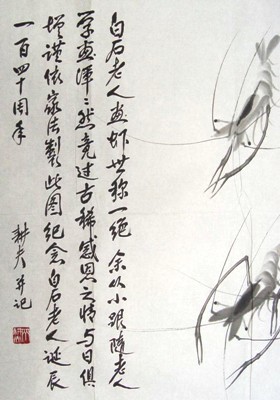 白石老人画虾世称一绝 余从小跟随老人
学画浑浑然竟过古稀感恩之情与日俱
增谨依家法制此图纪念白石老人诞辰
一百四十周年
耕夫并记